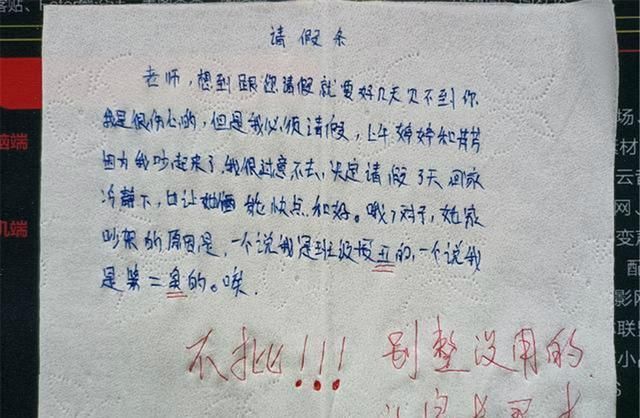 请假条
老师，想到跟您请假就要好几天见不到你
我是很伤心的，但是我必须请假，上午婷婷和菁菁
因为我吵起来了，我很过意不去，决定请假3天回家
冷静下，也让她俩能快点和好。哦，对了，她家
吵架的原因是，一个说我是班级最丑的，一个说我
是第二丑的。唉.
不批!!! 别整没用的
脑端
机端
场、
云
网
变声
影网